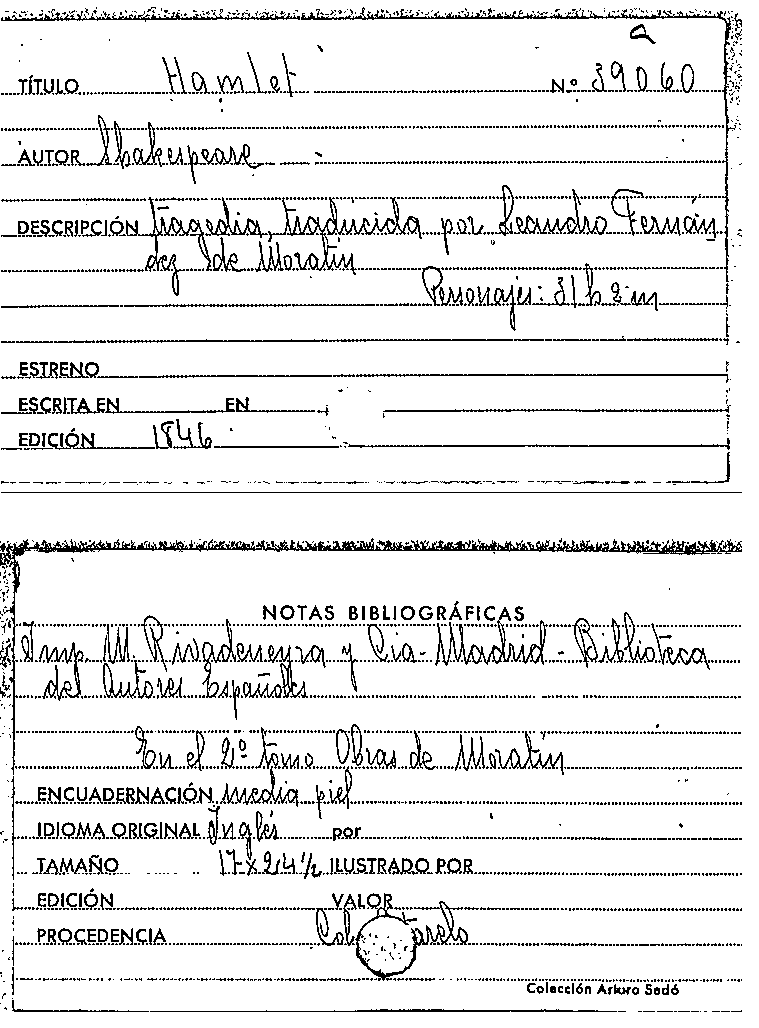 a
TÍTULO Hamlet Nº 39060
AUTOR Shakespeare
DESCRIPCIÓN tragedia, traducida por Leandro Fernán
dez de Moratin
Personajes: 31 h 2 m
ESTRENO
ESCRITA EN EN
EDICIÓN 1846
NOTAS BIBLIOGRÁFICAS
Imp. M. Rivadeneyra y Cia - Madrid - Biblioteca
del Autores Españoles
En el 2º tomo Obras de Moratín
ENCUADERNACIÓN media piel
IDIOMA ORIGINAL Inglés por
TAMAÑO 17 x 24 ½ ILUSTRADO POR
EDICIÓN VALOR
PROCEDENCIA
Colección Arturo Sedó